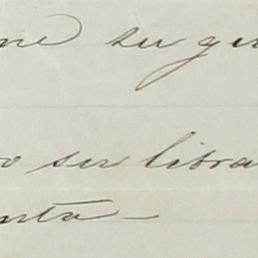 ne su ger
o ser libra
nta -